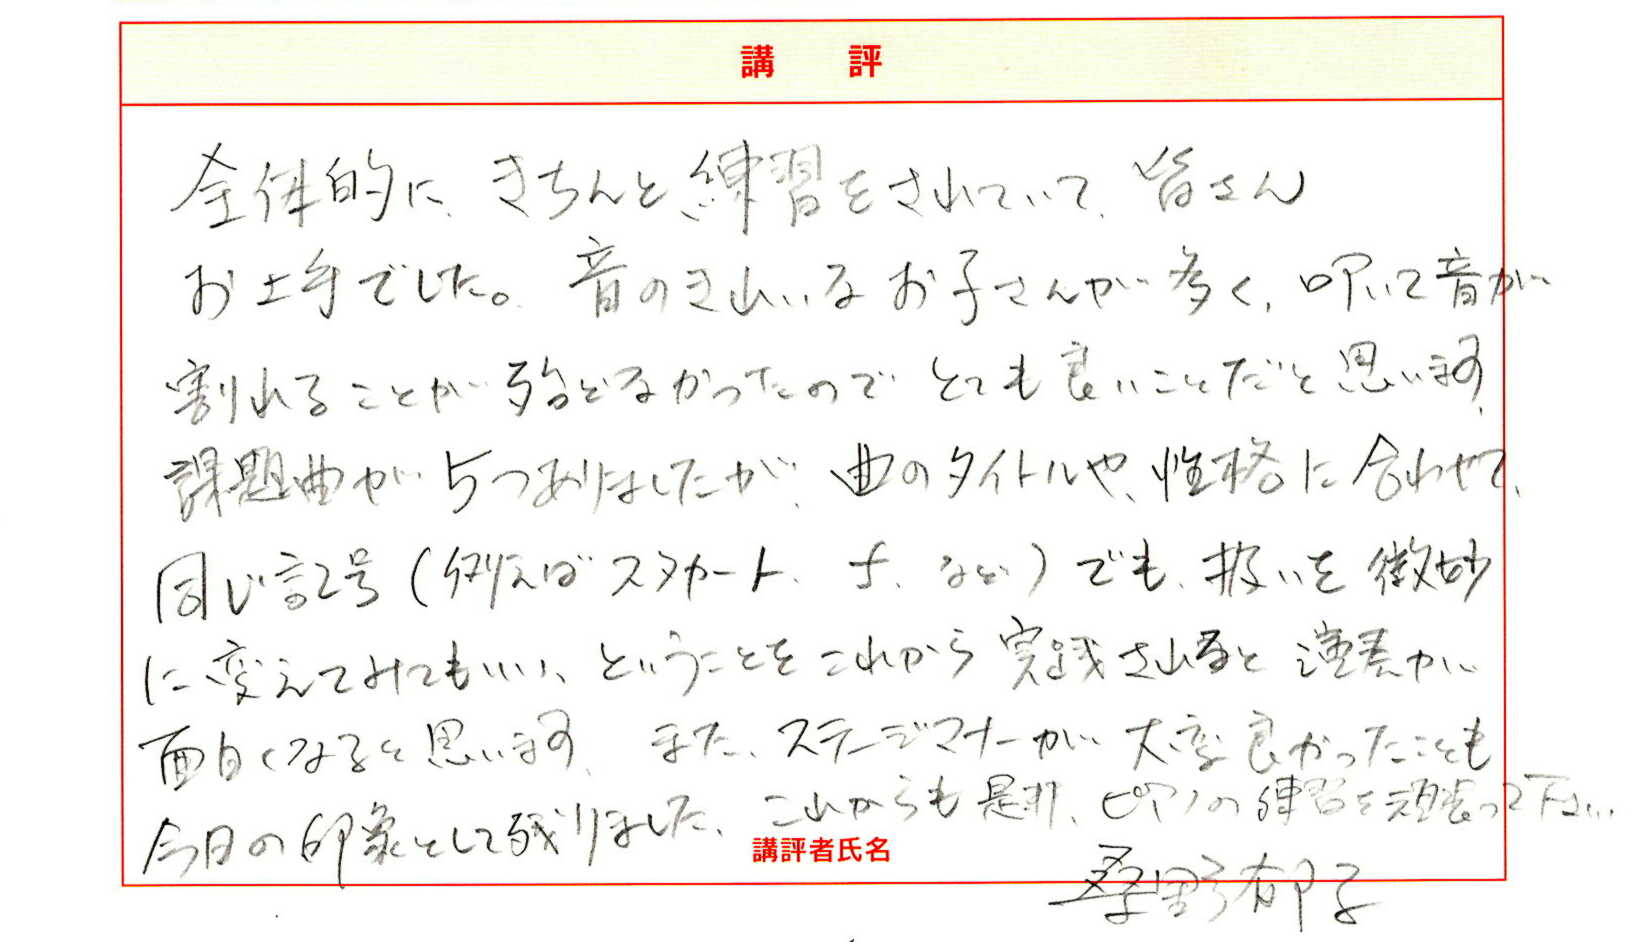 講評
全体的に、きちんと練習をされていて、皆さん
お上手でした。音のきれいなお子さんが多く、叩いて音が
割れることが殆どなかったのでとても良いことだと思います。
課題曲が5つありましたが、曲のタイトルや、性格に合わせて、
同じ記号(例えばスタカート、f、など)でも、扱いを微妙
に変えてみてもいい、ということをこれから実践されると演奏が
面白くなると思います。また、ステージマナーが大変良かったことも
今日の印象として残りました。これからも是非、ピアノの練習を頑張って下さい。
講評者氏名
桑野郁子